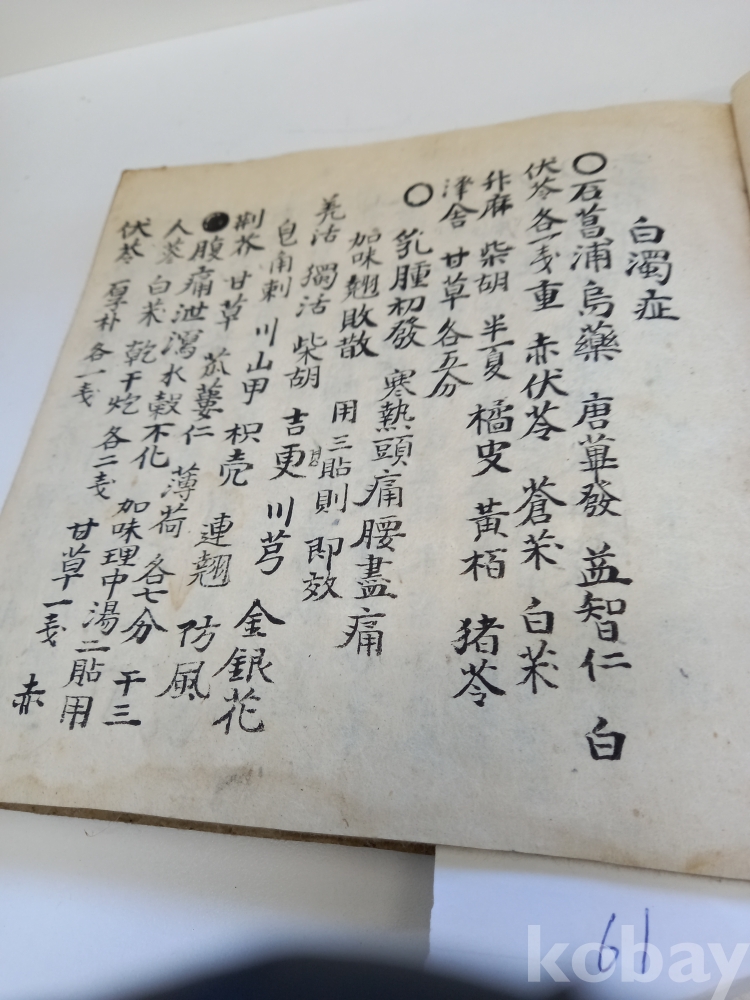 白濁症
○石菖浦烏藥 唐蓽發 益智仁 白
伏苓各一戔重 赤伏苓 蒼茉 白茉
升麻 柴胡 半夏 橘皮 黃栢 猪苓
泽舍 甘草各五分
○乳腫初發 寒熱頭痛腰盡痛
加味翹敗散 用三貼則 即效
羌活 獨活 柴胡 吉更 川芎 金銀花
皂角刺 川山甲 枳壳 連翹 防風
荊芥 甘草 苽蔞仁 薄荷 各七分 干三
●腹痛泄瀉水穀不化 加味理中湯二貼用
人蔘 白茉 乾干炮 各二戔 甘草一戔 赤
伏苓 厚朴 各一戔
61
kobay